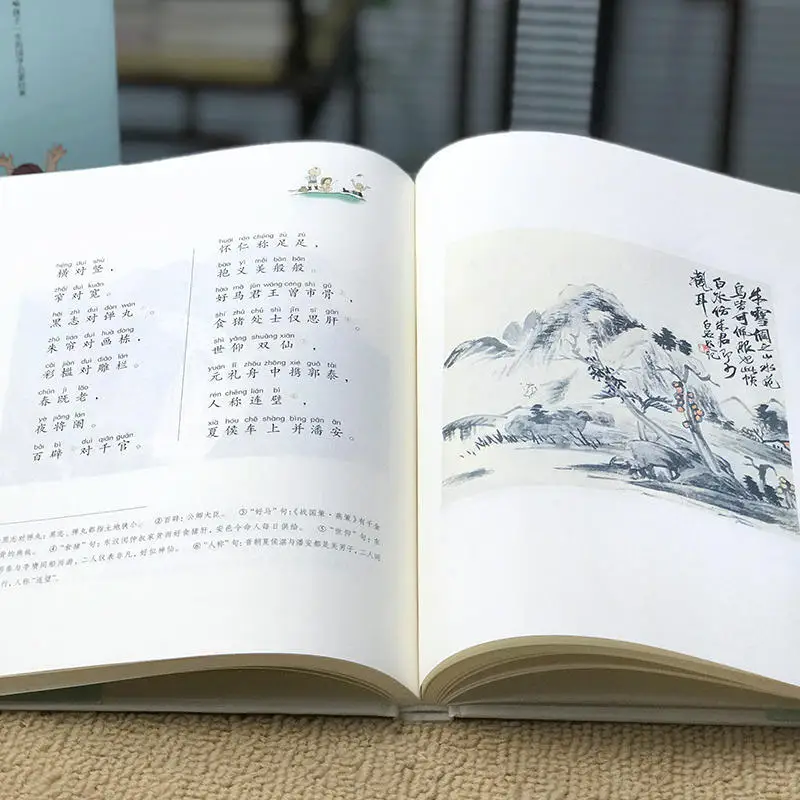 héng duì shù
横对竖，
zhǎi duì kuān
窄对宽。
hēi zhì duì dàn wán
黑志对弹丸。
zhū lián duì huà dòng
朱帘对画栋，
cǎi jiàn duì diāo lán
彩槛对雕栏。
chūn jì lǎo
春既老，
yè jiāng lán
夜将阑。
bǎi bì duì qiān guān
百辟对千官。
huái rén chēng zú zú
怀仁称足足，
bào yì měi bān bān
抱义美般般。
hào mǎ jūn wáng céng shì gǔ
好马君王曾市骨，
shí zhū chǔ shì jǐn sī gān
食猪处士仅思肝。
shì yǎng shuāng xiān
世仰双仙，
yuán lǐ zhōu zhōng xié guō tài
元礼舟中携郭泰，
rén chēng lián bì
人称连璧，
xià hóu chē shàng bìng pān ān
夏侯车上并潘安。
黑志对弹丸：黑志、弹丸都指土地狭小。 ②百辟：公卿大臣。 ③“好马”句：《战国策·燕策》有千金
骨的典故。 ④“食猪”句：东汉闵仲叔家贫而好食猪肝，安邑令命人每日供给。 ⑤“世仰”句：东
郭泰与李膺同船而游，二人仪表非凡，好位神仙。 ⑥“人称”句：晋朝夏侯湛与潘安都是美男子，二人同
行，人称“连璧”。